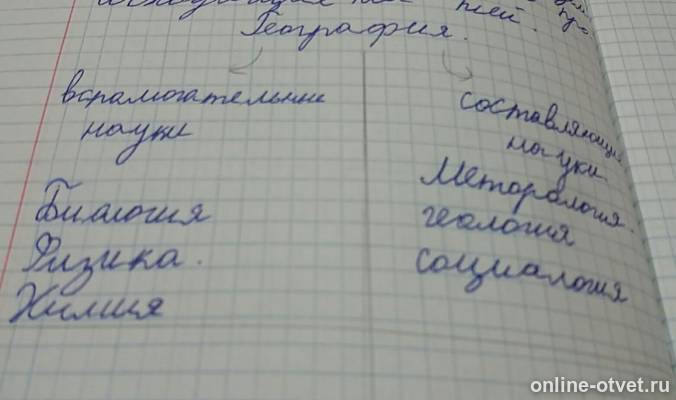 География.
вспамогательные
науки
Биология
Физика.
Химия
составляющие
науки
Меторология.
геология
социалогия
online-otvet.ru